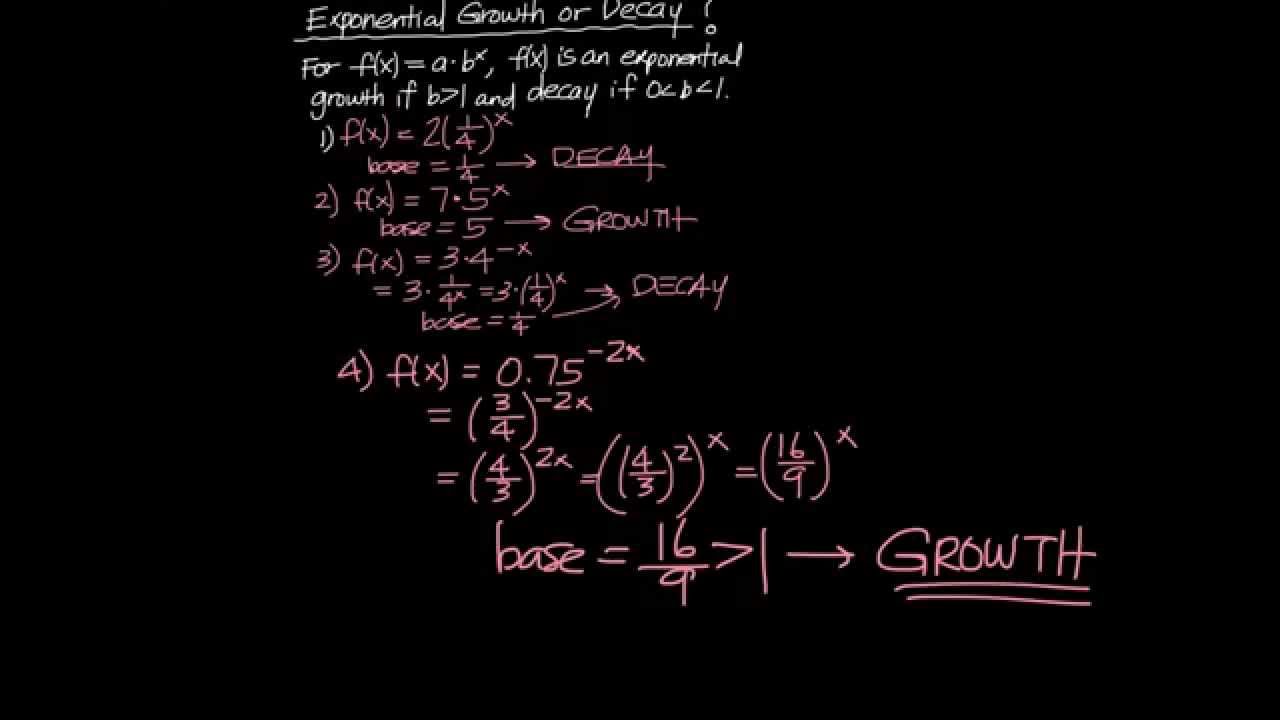 Exponential Growth or Decay?
For f(x) = a·bˣ, f(x) is an exponential
growth if b>1 and decay if 0<b<1.
1) f(x) = 2(1/4)ˣ
base = 1/4 → DECAY
2) f(x) = 7·5ˣ
base = 5 → GROWTH
3) f(x) = 3·4⁻ˣ
= 3·1/4ˣ = 3·(1/4)ˣ → DECAY
base = 1/4
4) f(x) = 0.75⁻²ˣ
= (3/4)⁻²ˣ
= (4/3)²ˣ = ((4/3)²)ˣ = (16/9)ˣ
base = 16/9 > 1 → GROWTH